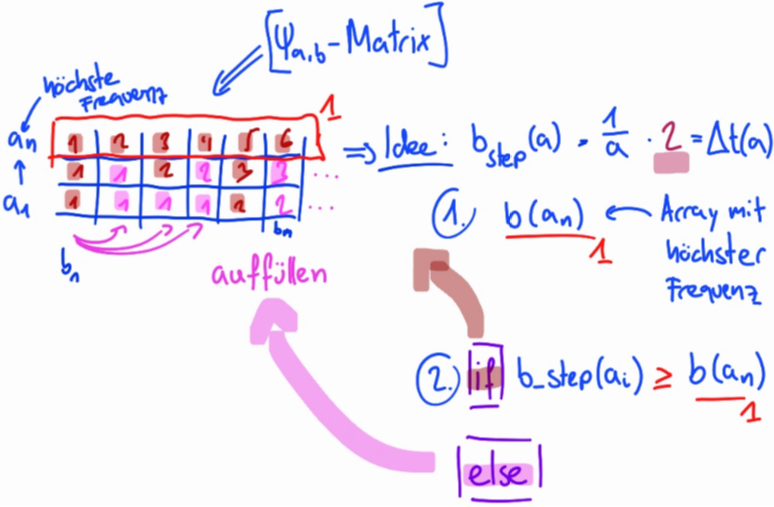 [Ψa,b - Matrix]
höchste
Frequenz
1
an 1 2 3 4 5 6
1 1 2 2 3 3 ...
a1 1 1 1 1 2 2 ...
b1 bn
auffüllen
⇒ Idee: b_step(a) = 1/a · 2 = Δt(a)
1. b(an) ← Array mit
1 höchster
Frequenz
2. if b_step(ai) ≥ b(an)
1
else